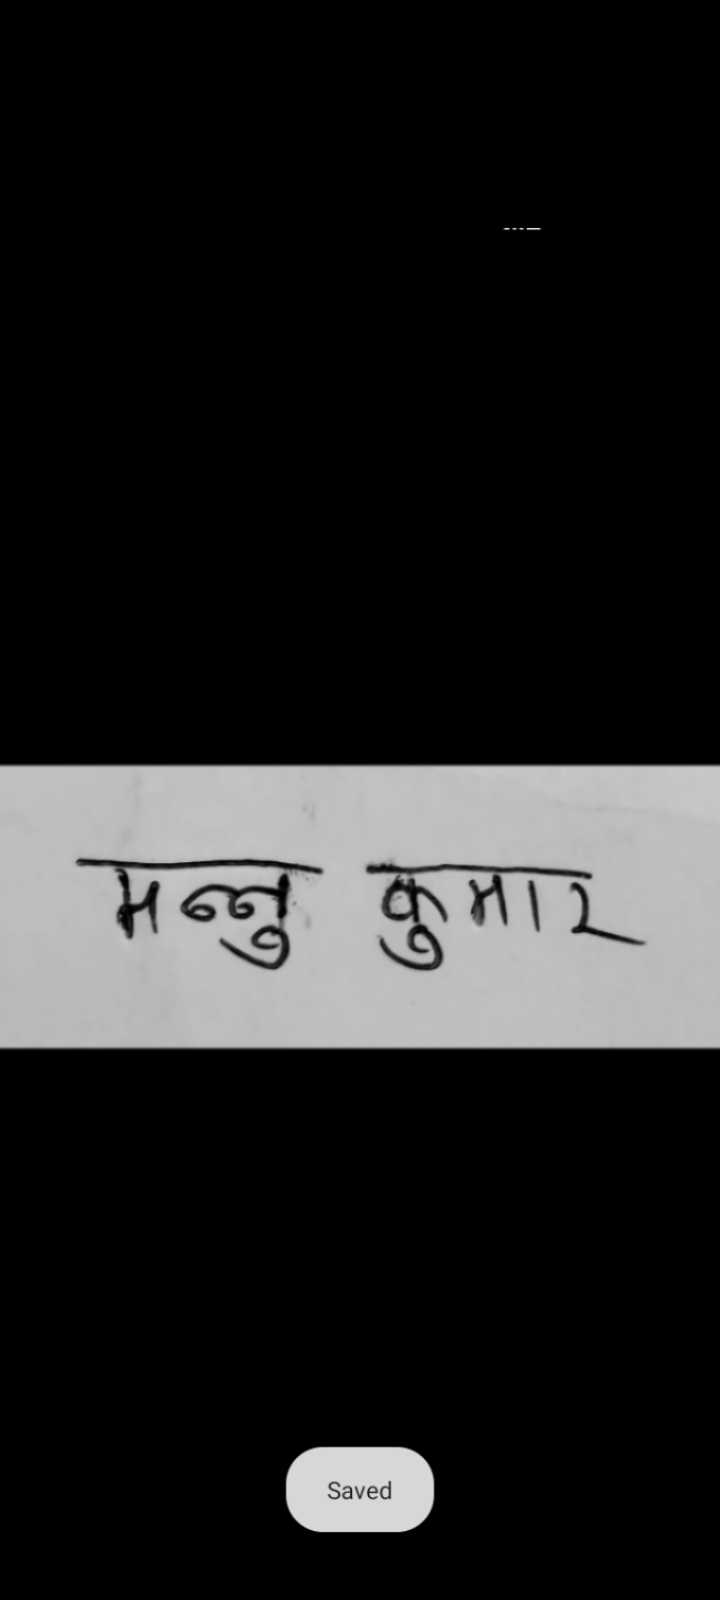 मन्नु कुमार
Saved